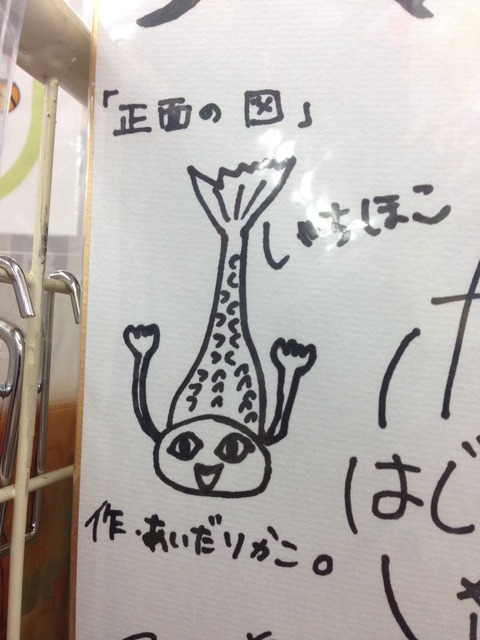 「正面の図」
しゃちほこ
はじ
作.あいだりかこ。